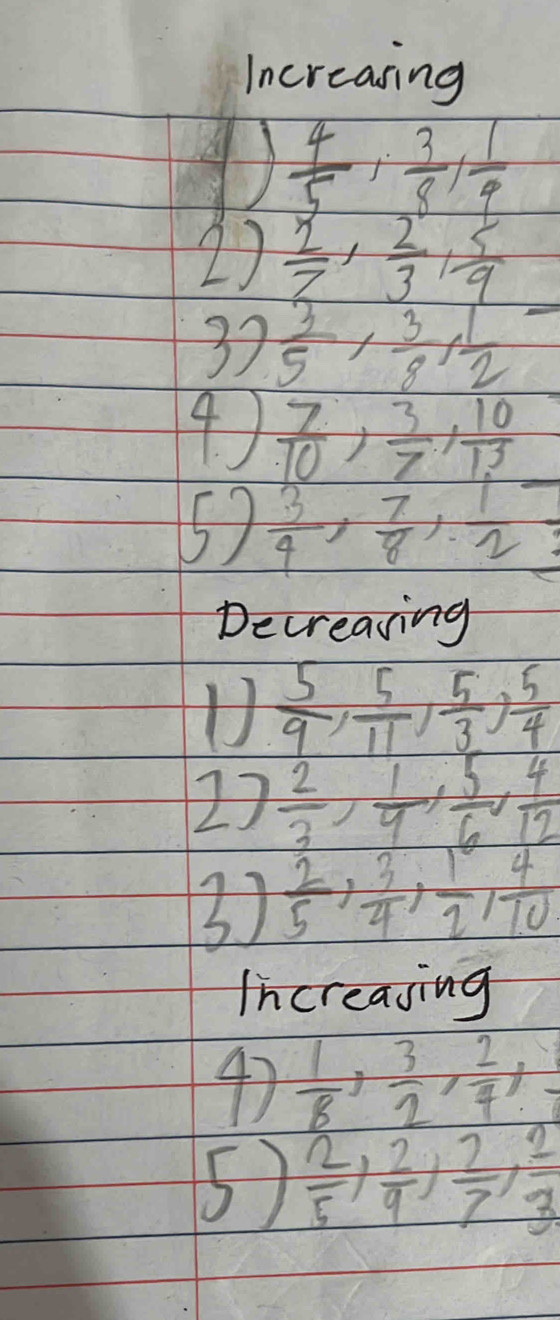 Increasing
1) 4/5, 3/8, 1/4
2) 2/7, 2/3, 5/9
3) 3/5, 3/8, 1/2
4) 7/10, 3/7, 10/13
5) 3/4, 7/8, 1/2
Decreasing
1) 5/9, 5/11, 5/3, 5/4
2) 2/3, 1/4, 5/6, 4/12
3) 2/5, 3/4, 1/2, 4/10
Increasing
4) 1/8, 3/2, 2/4,
5) 2/5, 2/9, 2/7, 2/3